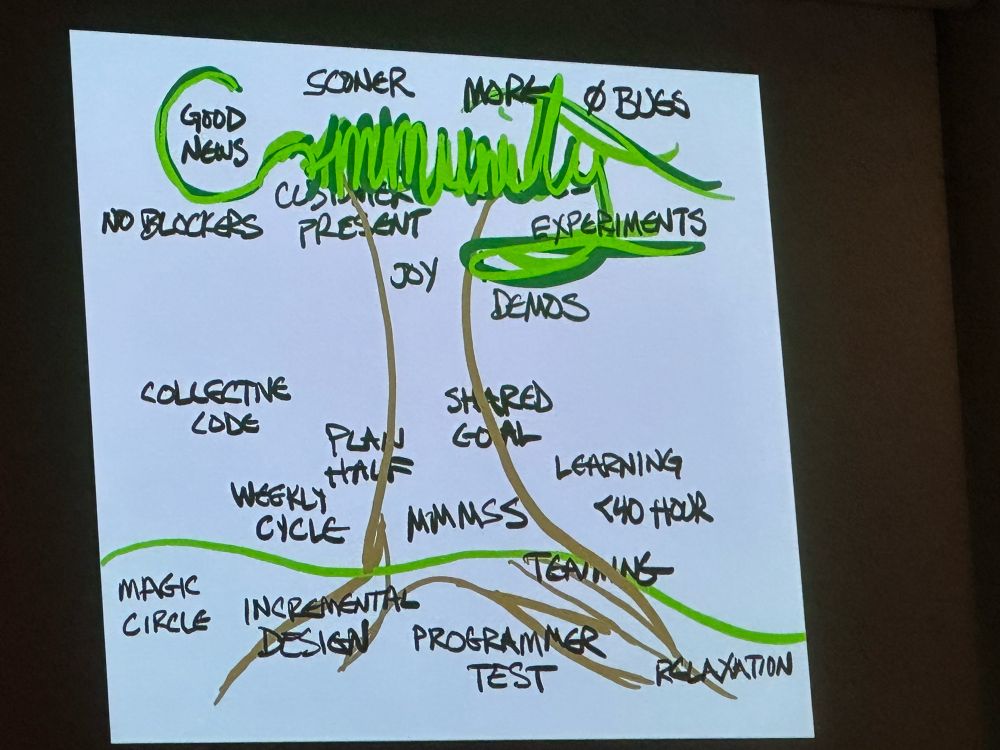 SOONER
MORE
Ø BUGS
GOOD
NEWS
Community
CUSTOMER
PRESENT
NO BLOCKERS
EXPERIMENTS
JOY
DEMOS
COLLECTIVE
CODE
SHARED
GOAL
PLAN
HALF
LEARNING
WEEKLY
CYCLE
MMMSS
<40 HOUR
TEAMING
MAGIC
CIRCLE
INCREMENTAL
DESIGN
PROGRAMMER
TEST
RELAXATION